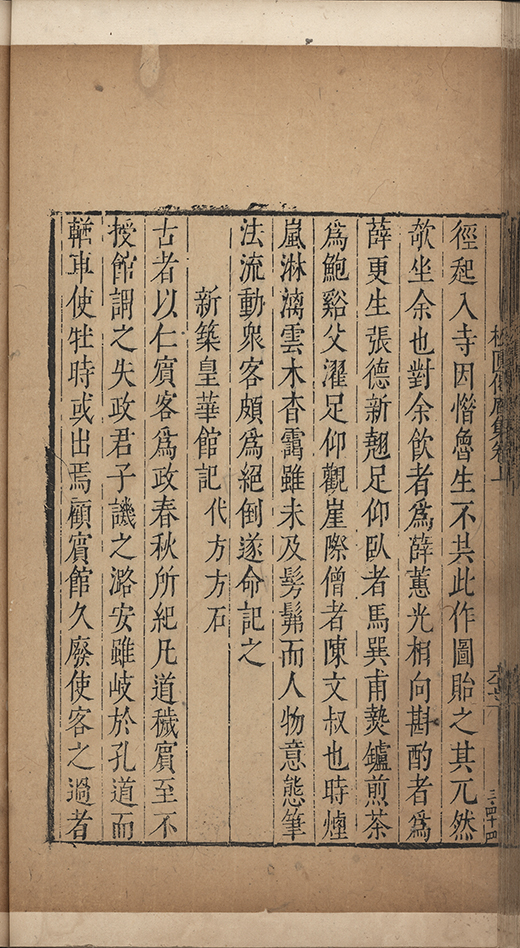 徑起入寺因憯魯生不共此作圖貽之其兀然
欹坐余也對余飲者爲薛蕙光相向斟酌者爲
薛更生張德新翹足仰臥者馬巽甫爇鑪煎茶
爲鮑谿父濯足仰觀崖際僧者陳文叔也時煙
嵐淋漓雲木杳靄雖未及髣髴而人物意態筆
法流動衆客頗爲絕倒遂命記之
新築皇華館記代方方石
古者以仁賓客爲政春秋所紀凡道穢賓至不
授館謂之失政君子譏之潞安雖岐於孔道而
輶車使牡時或出焉顧賓館久廢使客之過者